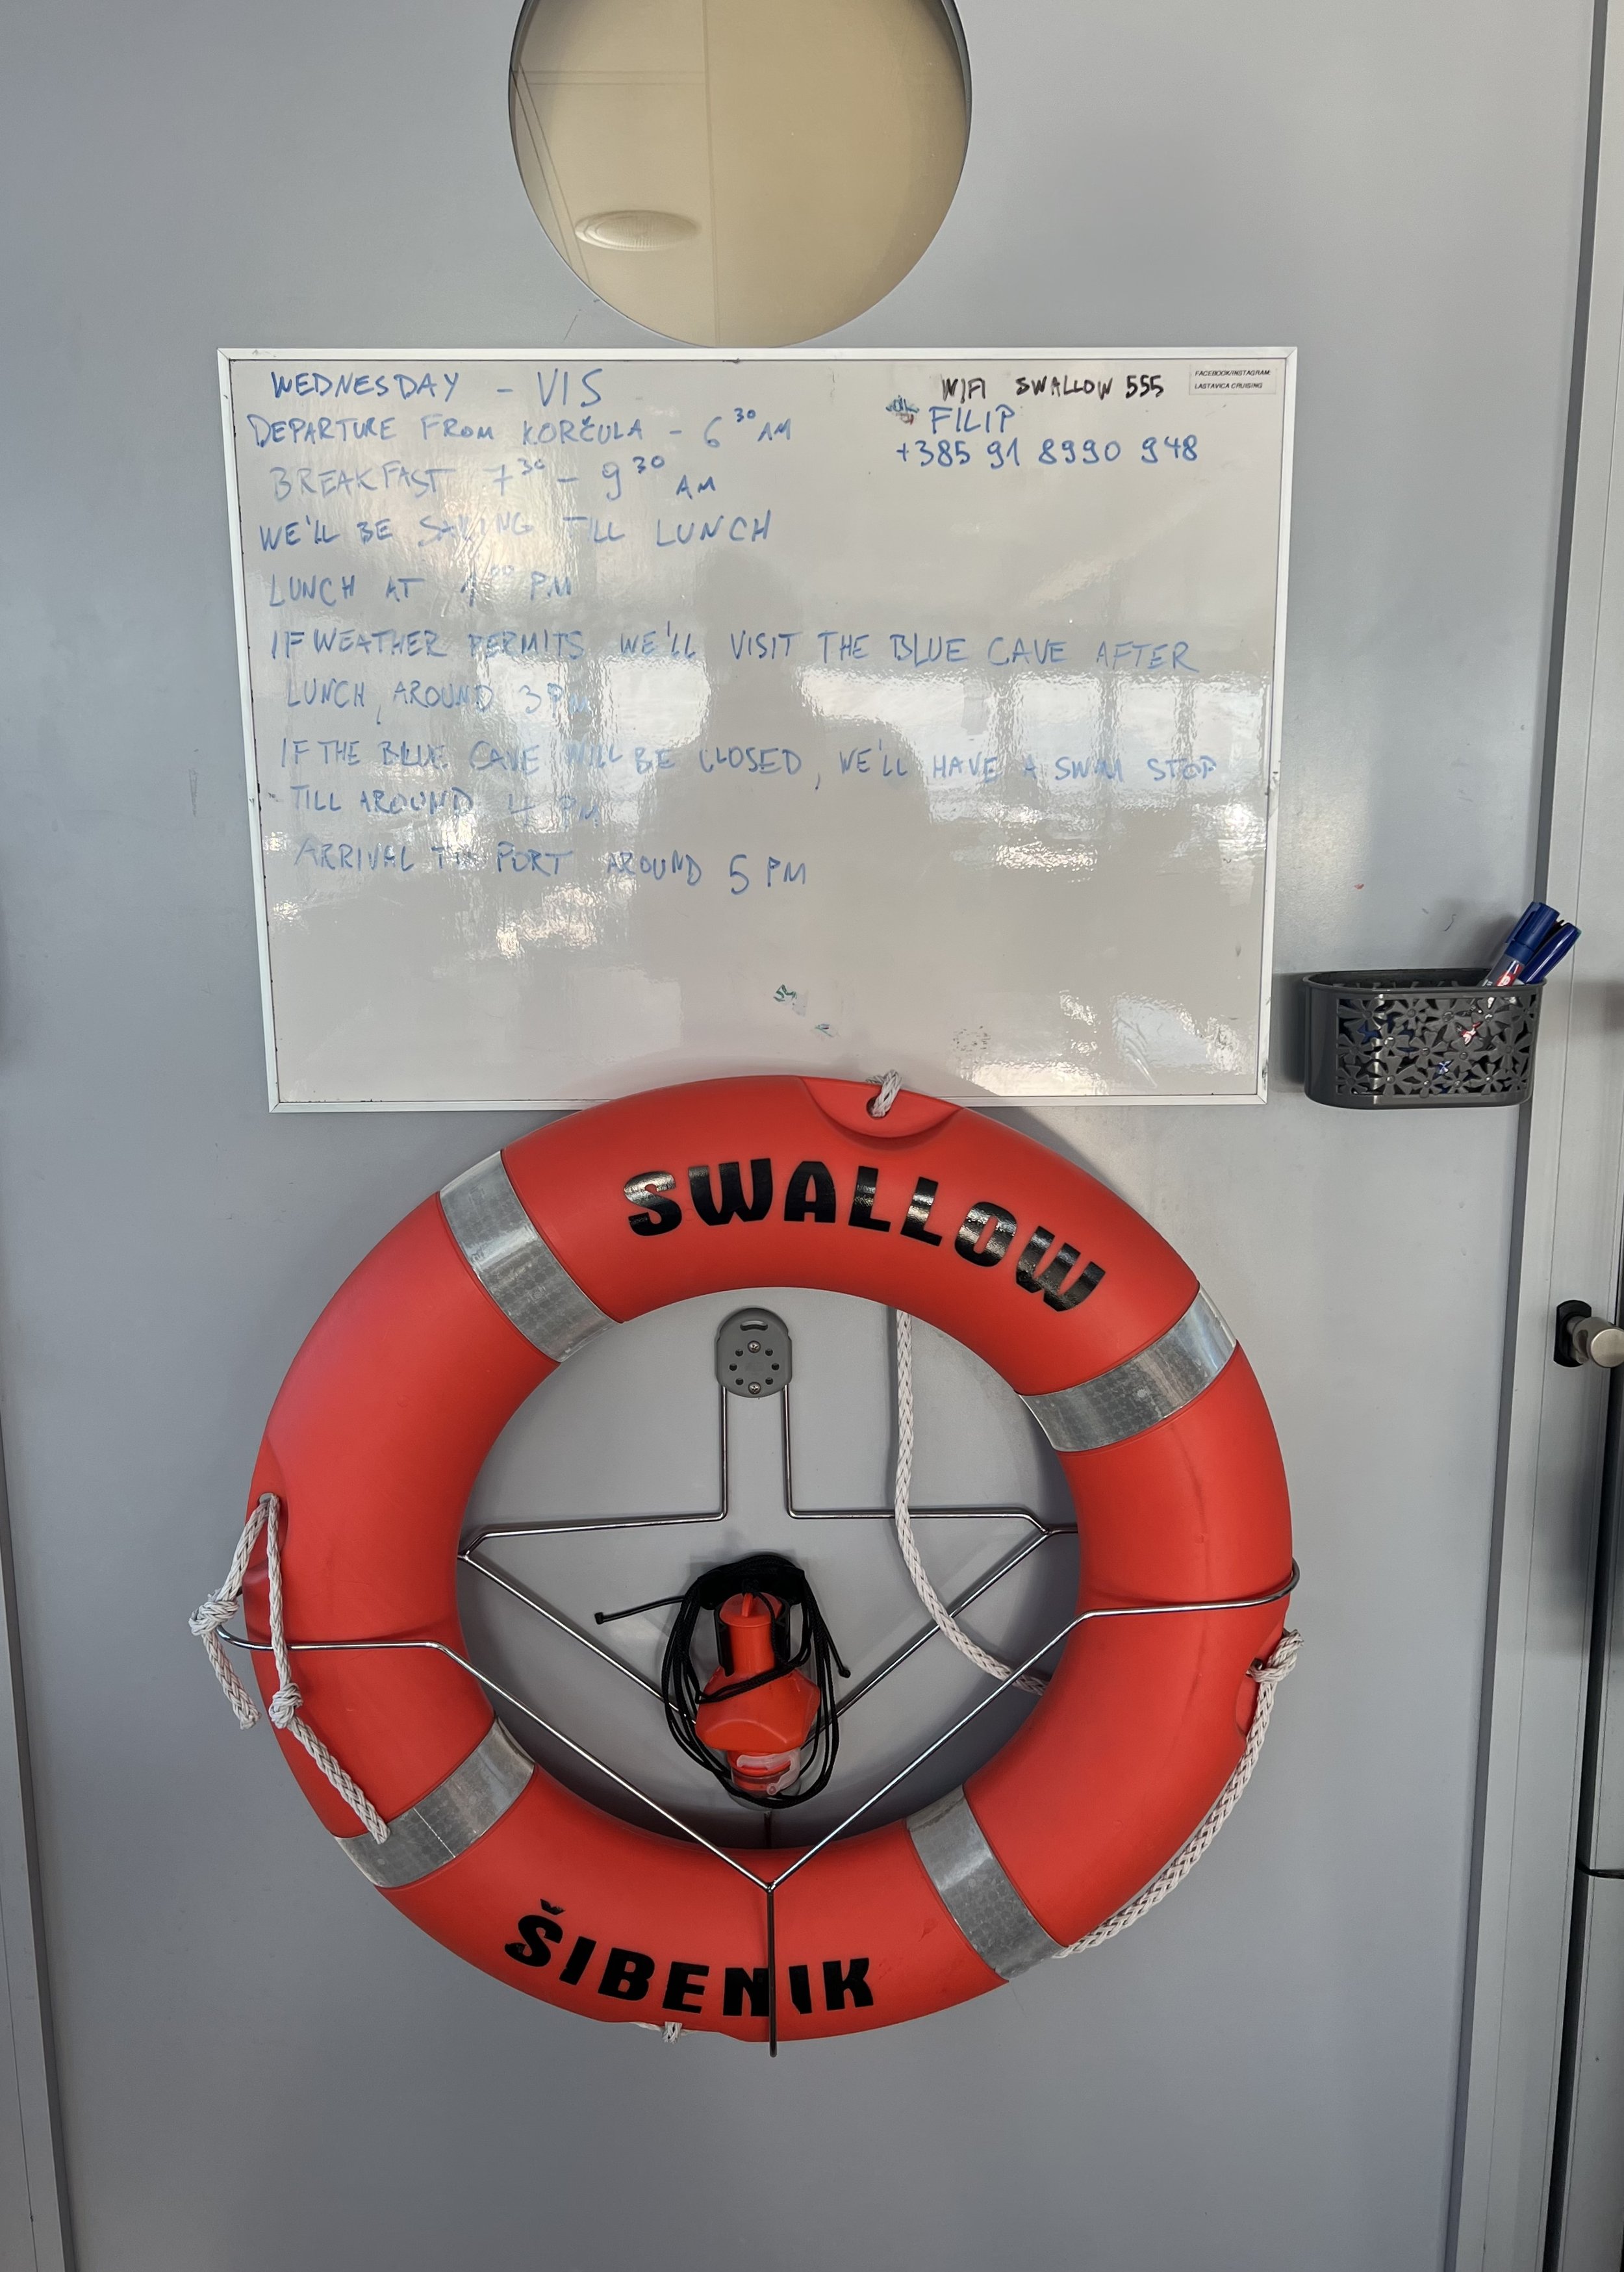 WEDNESDAY - VIS
DEPARTURE FROM KORČULA - 6³⁰ AM
BREAKFAST 7³⁰ - 9³⁰ AM
WE'LL BE SAILING TILL LUNCH
LUNCH AT 1⁰⁰ PM
IF WEATHER PERMITS WE'LL VISIT THE BLUE CAVE AFTER
LUNCH, AROUND 3 PM
IF THE BLUE CAVE WILL BE CLOSED, WE'LL HAVE A SWIM STOP
TILL AROUND 4 PM
ARRIVAL PORT AROUND 5 PM
WIFI SWALLOW 555
FILIP
+385 91 8990 948
FACEBOOK/INSTAGRAM
LASTAVICA CRUISING
SWALLOW
ŠIBENIK